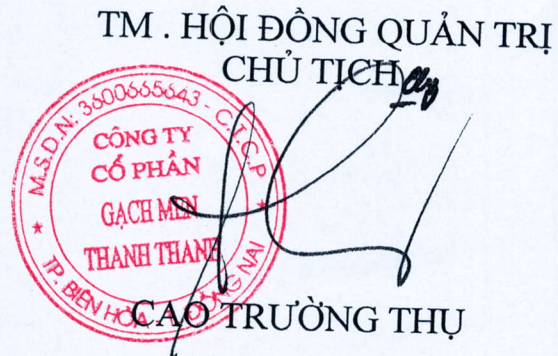 TM . HỘI ĐỒNG QUẢN TRỊ
CHỦ TỊCH
M.S.D.N: 3600665643 - C.T.C.P
CÔNG TY
CỔ PHẦN
GẠCH MEN
THANH THANH
TP. BIÊN HÒA - ĐỒNG NAI
CAO TRƯỜNG THỤ